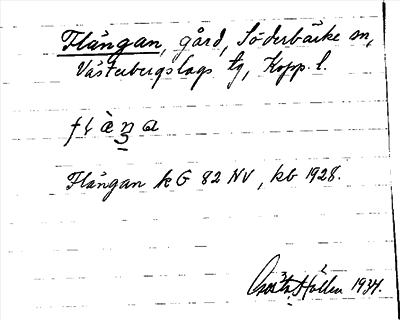 Flängan, gård, Söderbärke sn,
Västerbergslags tg, Kopp. l.
Flängan kG 82 NV, kb 1928.
Hollen 1937.